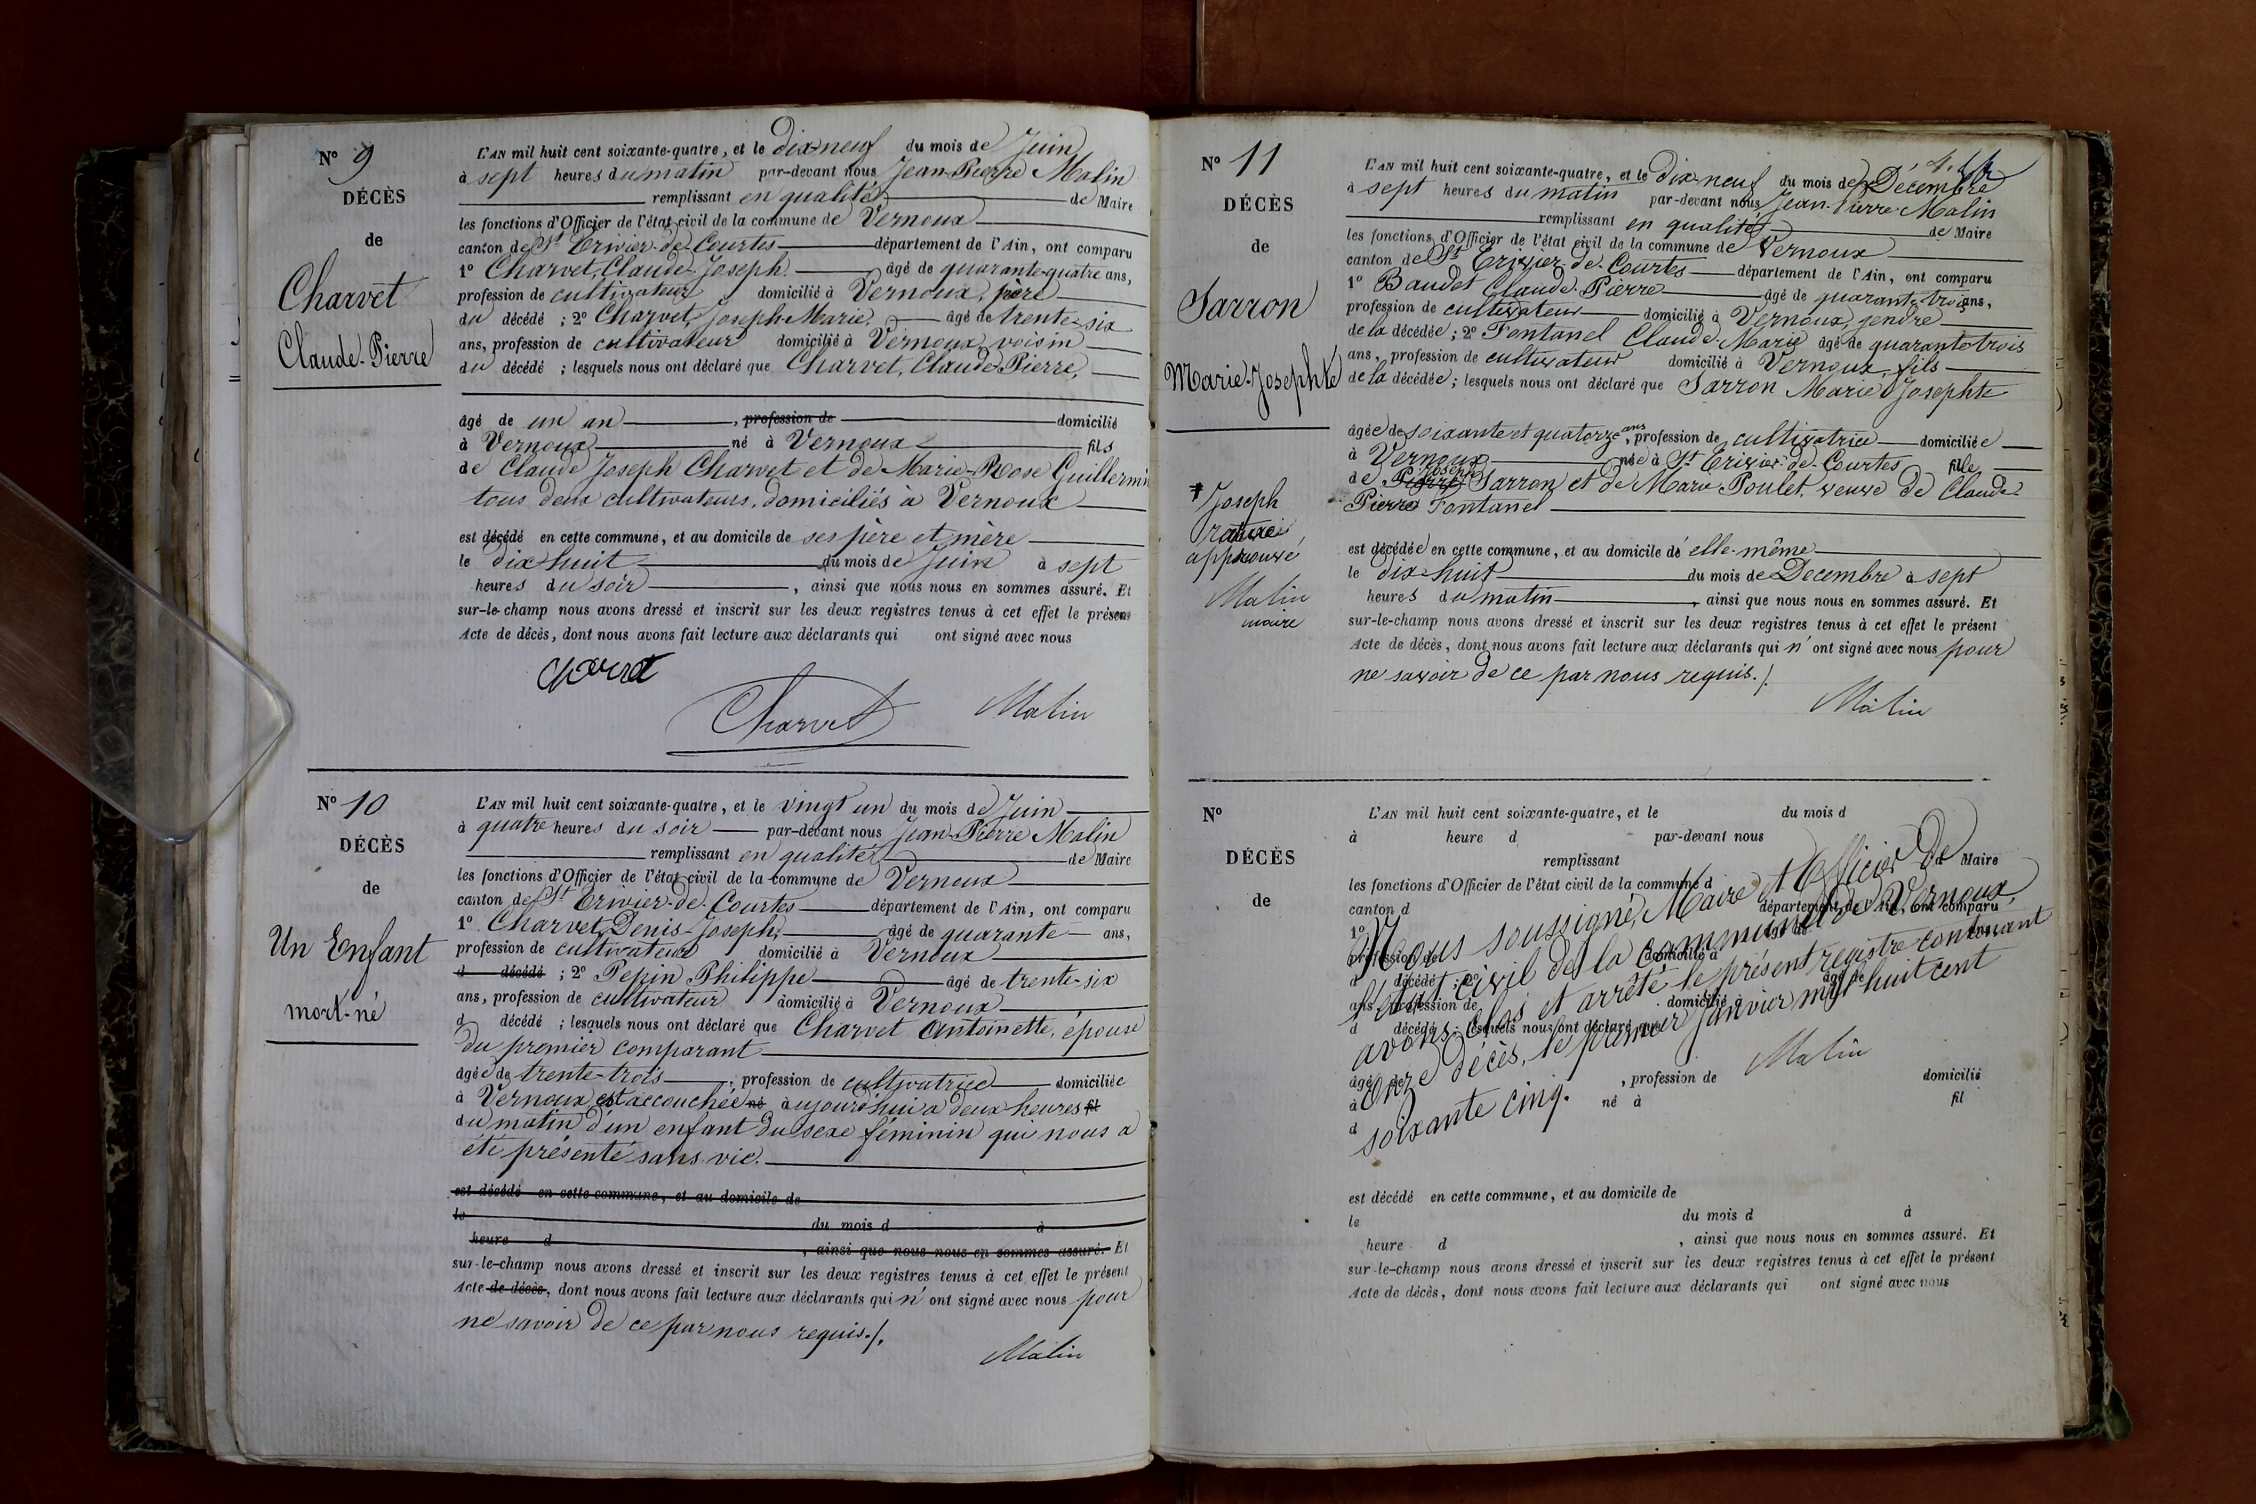 N° 9
DÉCÈS
de
Charvet
Claude-Pierre
L'AN mil huit cent soixante-quatre, et le dix-neuf du mois de Juin
à sept heures du matin par-devant nous Jean-Pierre Malin
remplissant en qualité de Maire
les fonctions d'Officier de l'état civil de la commune de Vernoux
canton de St Trivier-de-Courtes département de l'Ain, ont comparu
1° Charvet, Claude-Joseph âgé de quarante-quatre ans,
profession de cultivateur domicilié à Vernoux, père
du décédé ; 2° Charvet, Joseph-Marie, âgé de trente-six
ans, profession de cultivateur domicilié à Vernoux, voisin
du décédé ; lesquels nous ont déclaré que Charvet, Claude-Pierre,
âgé de un an , profession de domicilié
à Vernoux né à Vernoux fils
de Claude Joseph Charvet et de Marie-Rose Guillermin
tous deux cultivateurs, domiciliés à Vernoux
est décédé en cette commune, et au domicile de ses père et mère
le dix-huit du mois de Juin à sept
heures du soir , ainsi que nous nous en sommes assuré. Et
sur-le-champ nous avons dressé et inscrit sur les deux registres tenus à cet effet le présent
Acte de décès, dont nous avons fait lecture aux déclarants qui ont signé avec nous
Charvet
Charvet Malin
N° 10
DÉCÈS
de
Un Enfant
mort-né
L'AN mil huit cent soixante-quatre, et le vingt un du mois de Juin
à quatre heures du soir par-devant nous Jean-Pierre Malin
remplissant en qualité de Maire
les fonctions d'Officier de l'état civil de la commune de Vernoux
canton de St Trivier-de-Courtes département de l'Ain, ont comparu
1° Charvet, Denis-Joseph, âgé de quarante ans,
profession de cultivateur domicilié à Vernoux
d décédé ; 2° Pepin Philippe âgé de trente-six
ans, profession de cultivateur domicilié à Vernoux
d décédé ; lesquels nous ont déclaré que Charvet Antoinette, épouse
du premier comparant
âgée de trente-trois , profession de cultivatrice domiciliée
à Vernoux est accouchée né aujourd'hui a deux heures fil
du matin d'un enfant du sexe féminin qui nous a
été présenté sans vie.
est décédé en cette commune, et au domicile de
le du mois d à
heure d , ainsi que nous nous en sommes assuré. Et
sur-le-champ nous avons dressé et inscrit sur les deux registres tenus à cet effet le présent
Acte de décès, dont nous avons fait lecture aux déclarants qui n'ont signé avec nous pour
ne savoir de ce par nous requis./.
Malin
N° 11
DÉCÈS
de
Sarron
Marie-Josephte
Joseph
approuvé
Malin
maire
L'AN mil huit cent soixante-quatre, et le dix-neuf du mois de Décembre
à sept heures du matin par-devant nous Jean-Pierre Malin
remplissant en qualité de Maire
les fonctions d'Officier de l'état civil de la commune de Vernoux
canton de St Trivier-de-Courtes département de l'Ain, ont comparu
1° Baudet Claude-Pierre âgé de quarante-trois ans,
profession de cultivateur domicilié à Vernoux, gendre
de la décédée ; 2° Fontanel Claude-Marie âgé de quarante trois
ans, profession de cultivateur domicilié à Vernoux, fils
de la décédée ; lesquels nous ont déclaré que Sarron Marie Josephte
âgée de soixante et quatorze ans, profession de cultivatrice domiciliée
à Vernoux née à St Trivier-de-Courtes fille
de Pierre Joseph Sarron et de Marie Poulet, veuve de Claude
Pierre Fontanel
est décédée en cette commune, et au domicile d'elle-même
le dix-huit du mois de Decembre à sept
heures du matin , ainsi que nous nous en sommes assuré. Et
sur-le-champ nous avons dressé et inscrit sur les deux registres tenus à cet effet le présent
Acte de décès, dont nous avons fait lecture aux déclarants qui n'ont signé avec nous pour
ne savoir de ce par nous requis./.
Malin
N°
DÉCÈS
de
L'AN mil huit cent soixante-quatre, et le du mois d
à heure d par-devant nous
remplissant de Maire
les fonctions d'Officier de l'état civil de la commune d
canton d département de l'Ain, ont comparu
1° âgé de ans,
profession de domicilié à
d décédé ; 2° âgé de
ans, profession de domicilié à
d décédé ; lesquels nous ont déclaré que
âgé de , profession de domicilié
à né à fil
d
Nous soussigné, Maire et Officier De
l'état civil de la commune de Vernoux,
avons clos et arrêté le présent registre contenant
Onze décès, le premier Janvier mil huit cent
soixante cinq.
Malin
est décédé en cette commune, et au domicile de
le du mois d à
heure d , ainsi que nous nous en sommes assuré. Et
sur-le-champ nous avons dressé et inscrit sur les deux registres tenus à cet effet le présent
Acte de décès, dont nous avons fait lecture aux déclarants qui ont signé avec nous